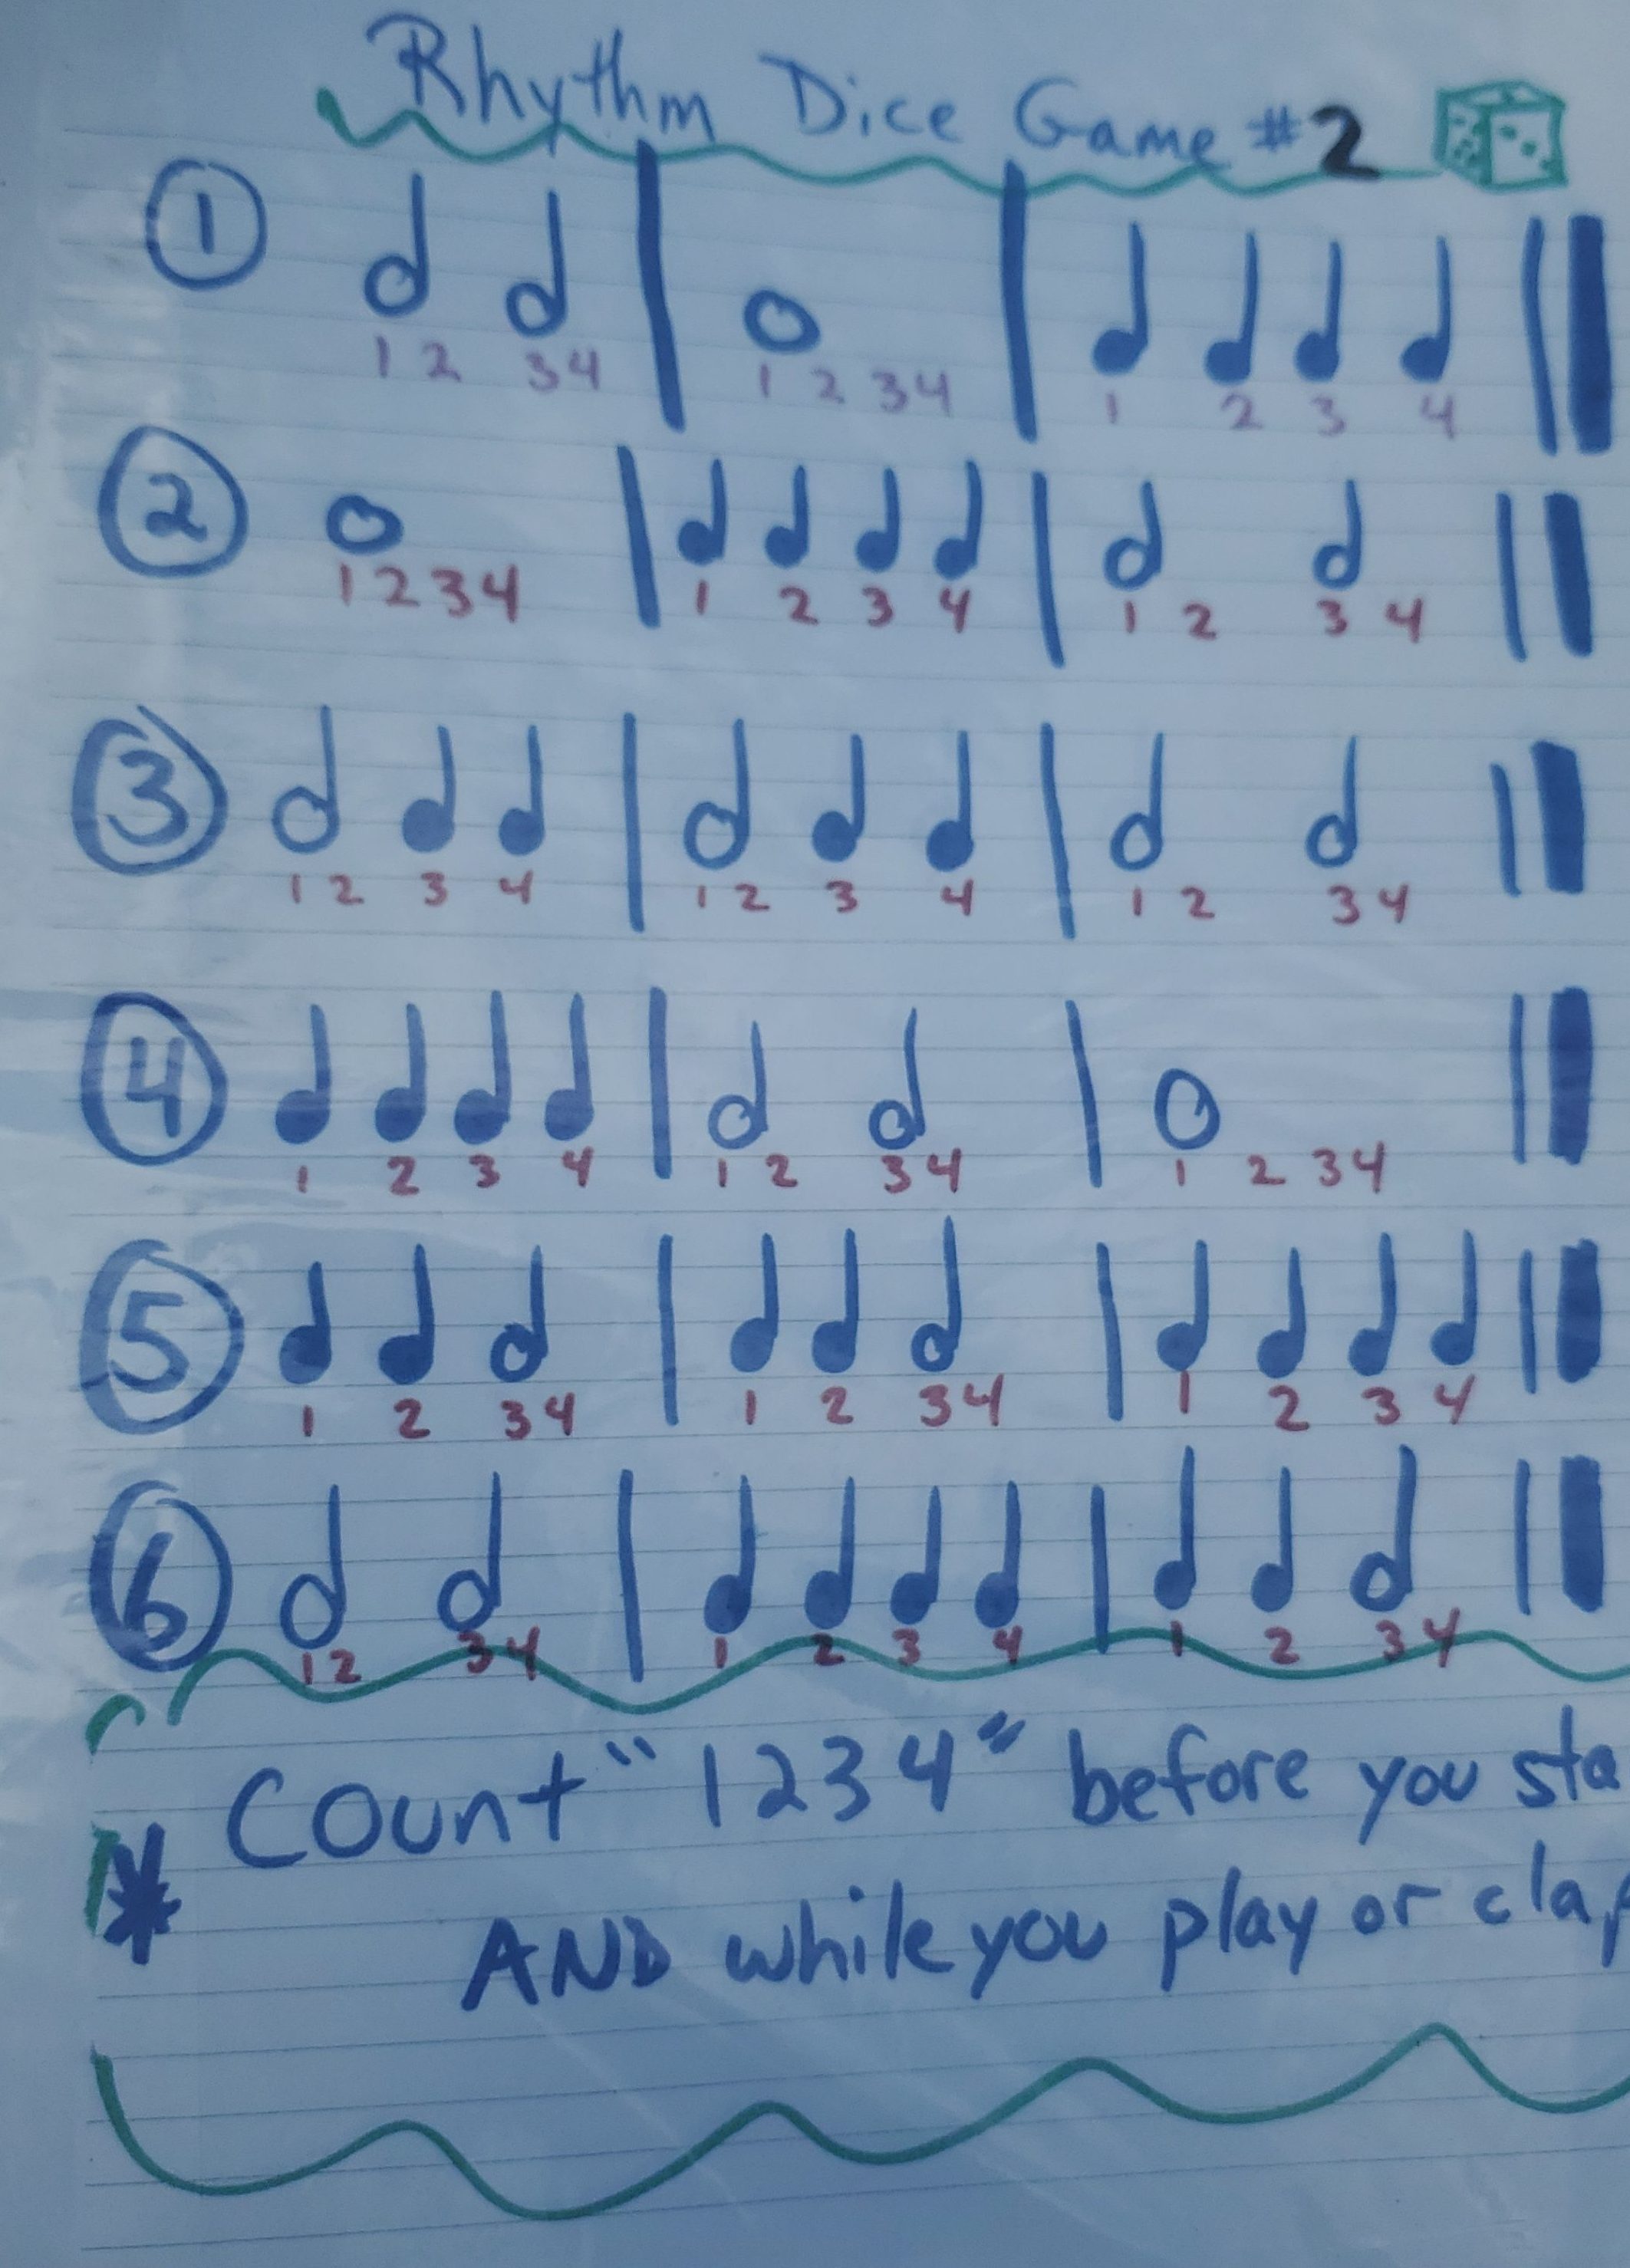 Rhythm Dice Game #2
1 12 34 1 2 34 1 2 3 4
2 1234 1 2 3 4 1 2 3 4
3 12 3 4 12 3 4 1 2 34
4 1 2 3 4 12 34 1 2 34
5 1 2 34 1 2 34 1 2 3 4
6 12 34 1 2 3 4 1 2 34
Count "1234" before you sta
* AND while you play or clap